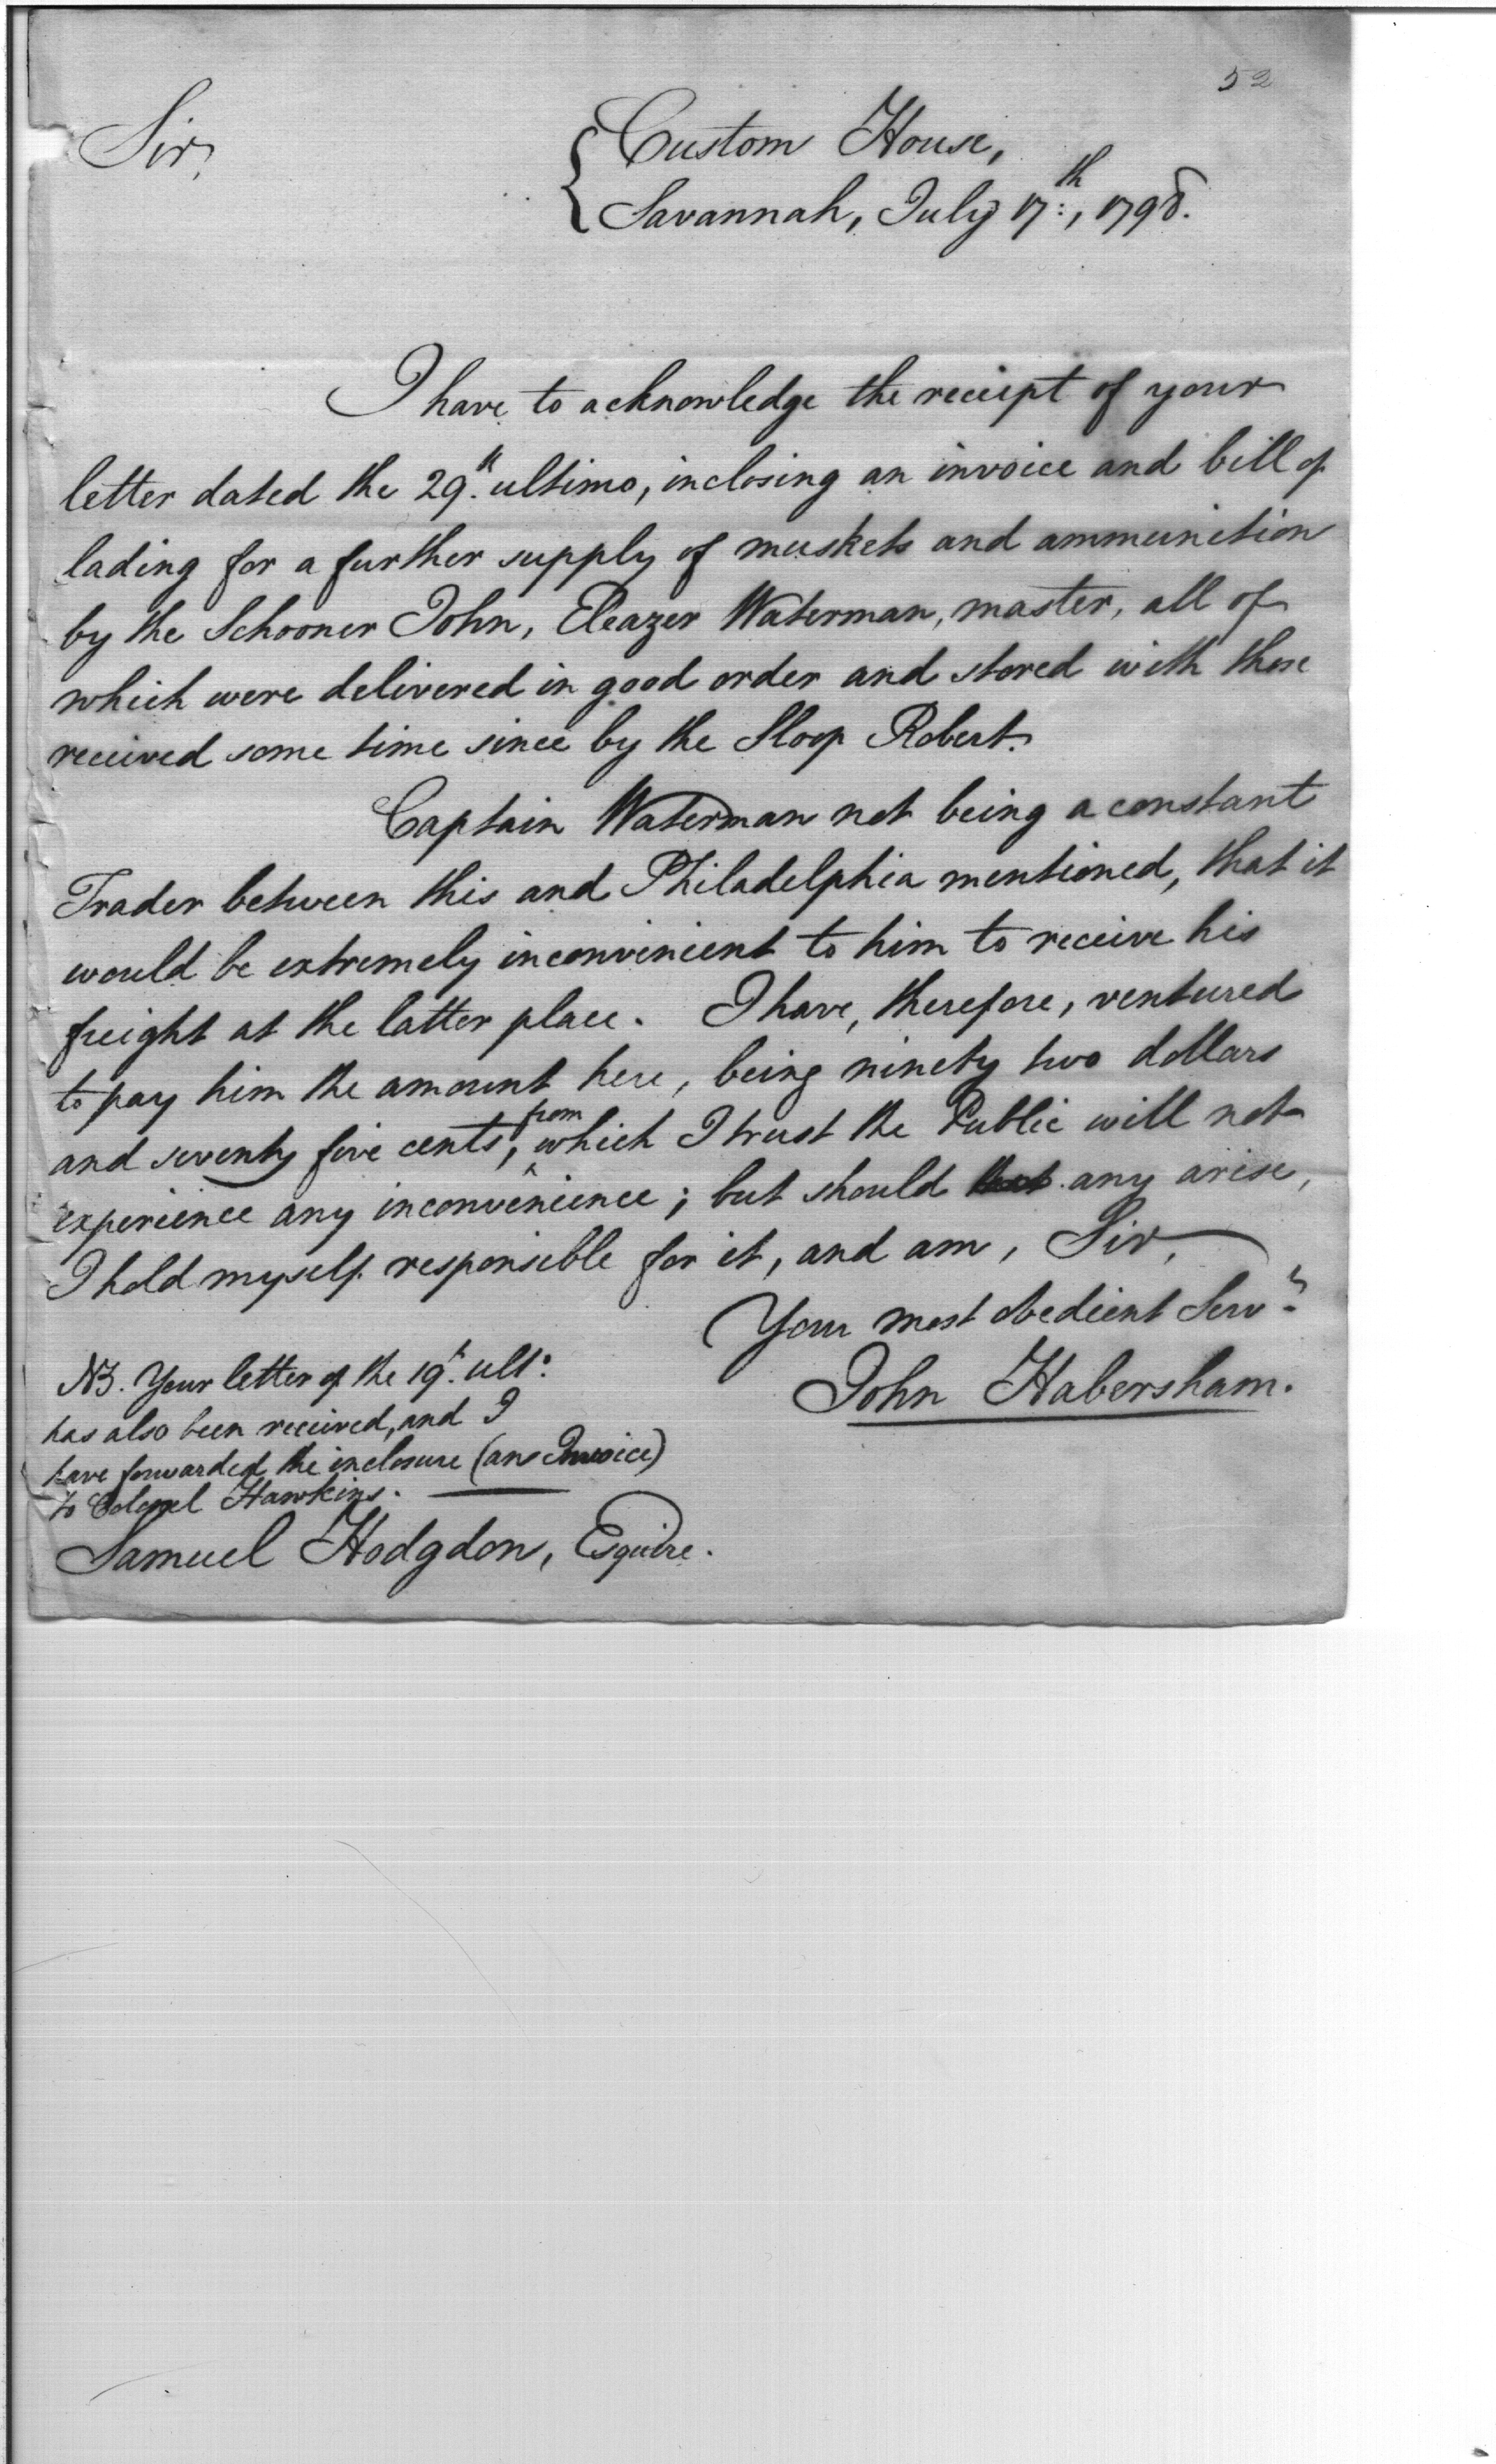 52
Sir,
Custom House,
Savannah, July 17th:, 1798.
I have to acknowledge the receipt of your
letter dated the 29th. ultimo, inclosing an invoice and bill of
lading for a further supply of muskets and ammunition
by the Schooner John, Eleazer Waterman, master, all of
which were delivered in good order and stored with those
received some time since by the Sloop Robert.
Captain Waterman not being a constant
Trader between this and Philadelphia mentioned, that it
would be extremely inconvenient to him to receive his
freight at the latter place. I have, therefore, ventured
to pay him the amount here, being ninety two dollars
and seventy five cents, from which I trust the Public will not
experience any inconvenience; but should any arise,
I hold myself responsible for it, and am, Sir,
Your most obedient Servt.
John Habersham.
NB. Your letter of the 19th. ulto:
has also been received, and I
have forwarded the inclosure (an Invoice)
to Colonel Hawkins.
Samuel Hodgdon, Esquire.